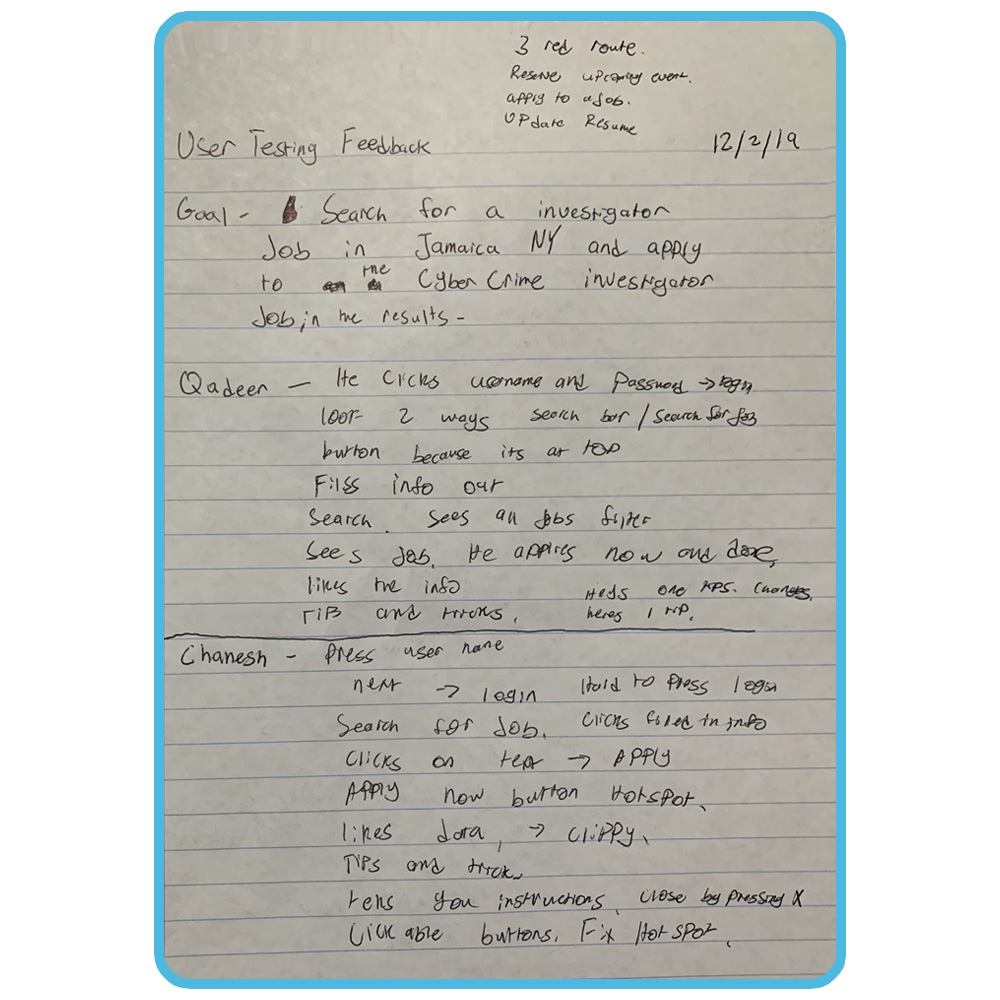 3 red route.
Reserve upcoming event.
apply to a Job.
UPdate Resume
User Testing Feedback 12/2/19
Goal - Search for a investigator
Job in Jamaica NY and apply
to the Cyber Crime investigator
Job in the results -
Qadeer - He clicks username and Password → login
look 2 ways search bar / search for job
button because its at top
Fills info out
Search. Sees all jobs filter
Sees Job. He applies now and done,
likes the info one changes.
Tips and tricks, heres 1 tip.
Chanesh - Press user name
next → login Hard to press login
Search for Job. Clicks filled in info
Clicks on text → APPly
APPly now button HotSpot.
likes data, → Clippy.
Tips and trick.
tells you instructions. close by pressing X
Click able buttons. Fix HotSpot.